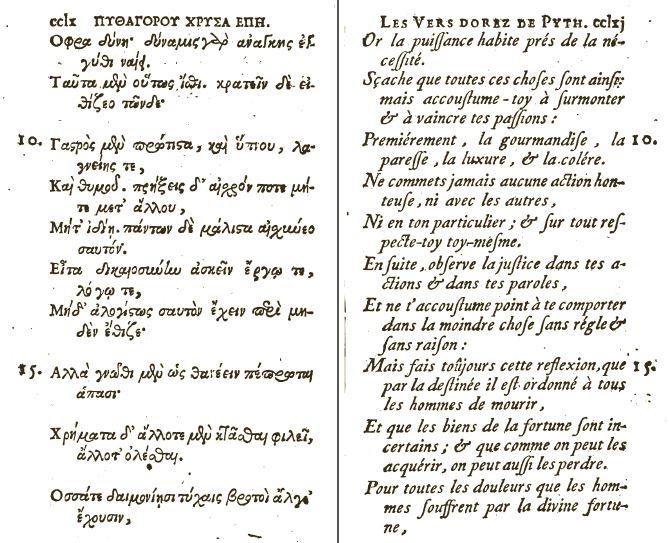 cclx ΠΥΘΑΓΟΡΟΥ ΧΡΥΣΑ ΕΠΗ.
Οφρα δύνῃ· δύναμις γὰρ ἀνάγκης ἐγ-
γύθι ναίει.
Ταῦτα μὲν οὕτως ἴσθι. κρατεῖν δὲ εἰ-
θίζεο τῶνδε·
10. Γαςρὸς μὲν πρώτιστα, καὶ ὕπνου, λα-
γνείης τε,
Καὶ θυμοῦ. πρήξεις δ' αἰσχρόν ποτε μή-
τε μετ' ἄλλου,
Μήτ' ἰδίῃ. πάντων δὲ μάλιστα αἰσχύνεο
σαυτόν.
Εἶτα δικαιοσύνην ἀσκεῖν ἔργῳ τε,
λόγῳ τε,
Μηδ' ἀλογίστως σαυτὸν ἔχειν περὶ μη-
δὲν ἔθιζε·
15. Αλλὰ γνῶθι μὲν ὡς θανέειν πέπρωται
ἅπασι·
Χρήματα δ' ἄλλοτε μὲν κτᾶσθαι φιλεῖ,
ἄλλοτ' ὀλέσθαι.
Οσσάτε δαιμονίῃσι τύχαις βροτοὶ ἄλγε'
ἔχουσιν,
LES VERS DOREZ DE PYTH. cclxj
Or la puiſſance habite prés de la né-
ceſſité.
Sçache que toutes ces choſes ſont ainſi;
mais accouſtume-toy à ſurmonter
& à vaincre tes paſſions :
Premiérement, la gourmandiſe, la 10.
pareſſe, la luxure, & la colére.
Ne commets jamais aucune action hon-
teuſe, ni avec les autres,
Ni en ton particulier ; & ſur tout reſ-
pecte-toy toy-méſme.
Enſuite, obſerve la juſtice dans tes a-
ctions & dans tes paroles,
Et ne t'accouſtume point à te comporter
dans la moindre choſe ſans régle &
ſans raiſon :
Mais fais toûjours cette reflexion, que 15.
par la deſtinée il eſt ordonné à tous
les hommes de mourir,
Et que les biens de la fortune ſont in-
certains ; & que comme on peut les
acquérir, on peut auſſi les perdre.
Pour toutes les douleurs que les hom-
mes ſouffrent par la divine fortu-
ne,